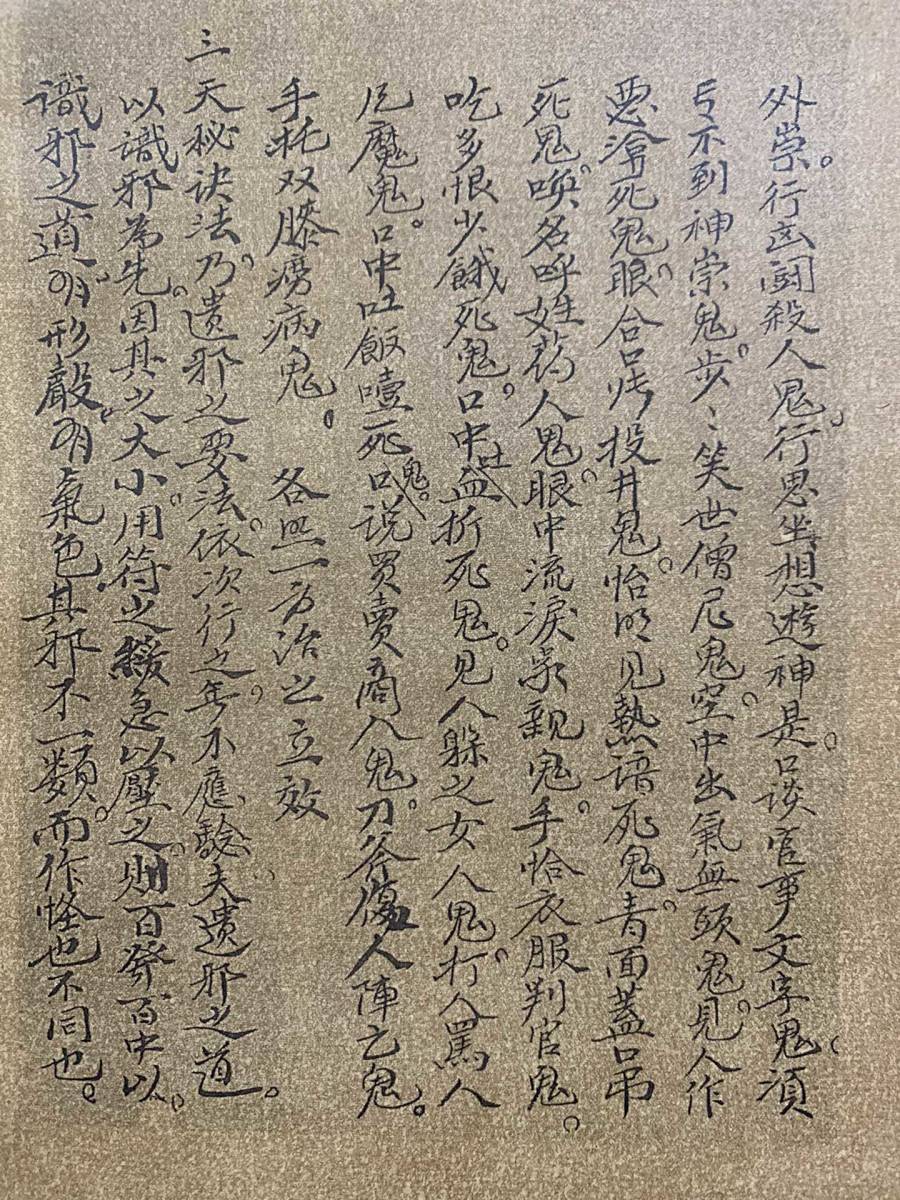 外崇。行凶鬪殺人鬼。行思坐想遊神是。口談官事文字鬼、須
亏不到神崇鬼。步、笑世僧尼鬼。空中出氣無頭鬼。見人作
悪 死鬼。眼合口 投井鬼。 见熱語死鬼。青面蓋口吊
死鬼。唤名呼姓药人鬼。眼中流淚 親鬼。手恰衣服判官鬼。
吃多恨少餓死鬼。口中吐 折死鬼。见人躲之女人鬼。打人罵人
是魔鬼。口中吐飯噎死鬼。口说買賣商人鬼。刀斧傷人陣亡鬼。
手托双膝痨病鬼。 各照一方治之立效
三天秘诀法。乃遺邪之要法。依次行之。無不應驗。夫遺邪之道。
以識邪為先。因其 大小。用符之緩急以壓之。则百發百中。以
識邪之道。有形聲。有氣色。其邪不一類。而作怪也不同也。